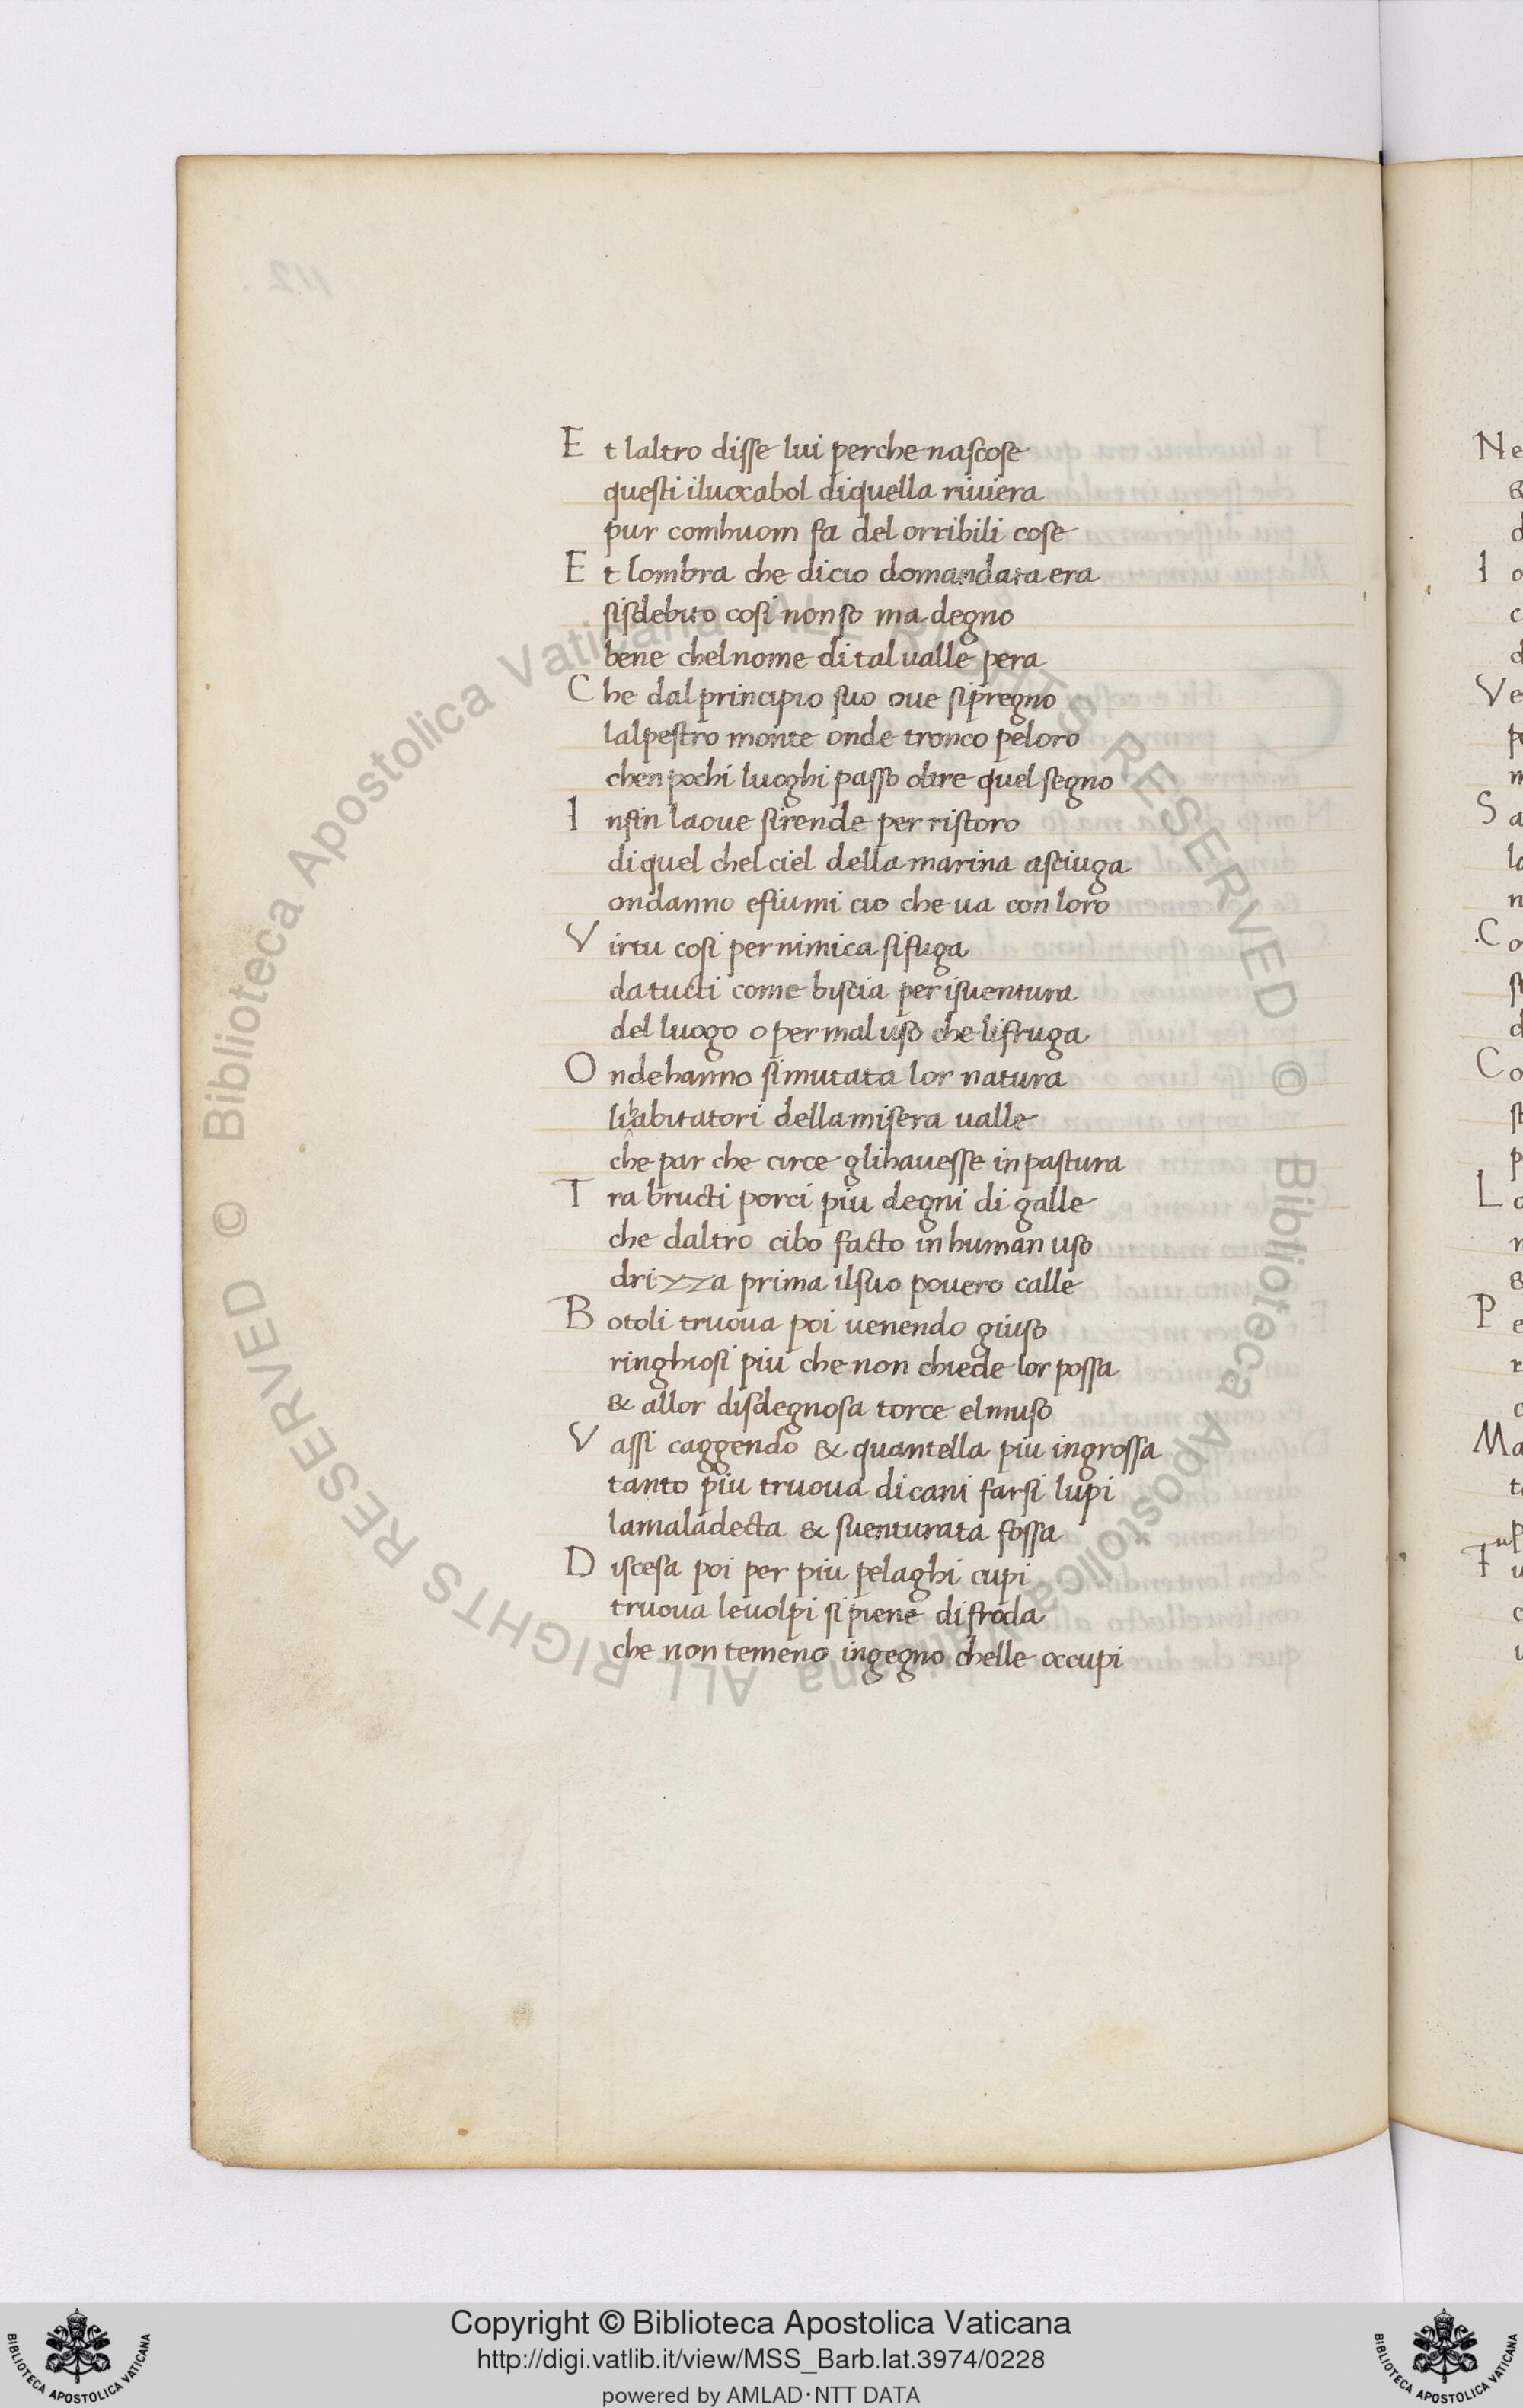 Et laltro disse lui perche nascose
questi iluocabol diquella riuiera
pur combuom fa del orribili cose
Et lombra che dicio domandata era
sisdebito cosi non so ma degno
bene chelnome di tal ualle pera
Che dal principio suo oue sipregno
lalpestro monte onde tronco peloro
chen pochi luoghi passo oltre quel segno
Infin laoue sirende per ristoro
di quel chel ciel della marina asciuga
ondanno efiumi cio che ua con loro
Virtu cosi per nimica sifuga
da tucti come biscia per isuentura
del luogo o per mal uso che lifruga
Ondehanno simutata lor natura
lihabitatori dellamisera ualle
che par che circe glihauesse in pastura
Tra bructi porci piu degni di galle
che daltro cibo facto in human uso
drizza prima ilsuo pouero calle
Botoli truoua poi uenendo giuso
ringhiosi piu che non chiede lor possa
& allor disdegnosa torce elmuso
Vassi caggendo & quantella piu ingrossa
tanto piu truoua dicani farsi lupi
lamaladecta & suenturata fossa
Discesa poi per piu pelaghi cupi
truoua leuolpi si piene difroda
che non temeno ingegno chelle occupi
Copyright © Biblioteca Apostolica Vaticana
http://digi.vatlib.it/view/MSS_Barb.lat.3974/0228
powered by AMLAD·NTT DATA